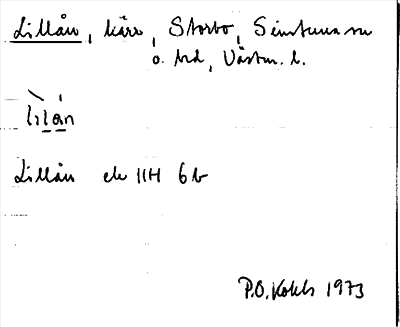 Lillån, kärr, Storbo, Simtuna sn
o. hd, Västm. l.
lilån
Lillån ek 11H 6b
P.O. 1973